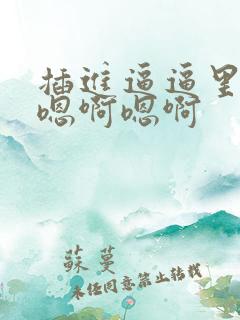 插进逼逼里
嗯啊嗯啊
蘇蔓
未经同意禁止转载